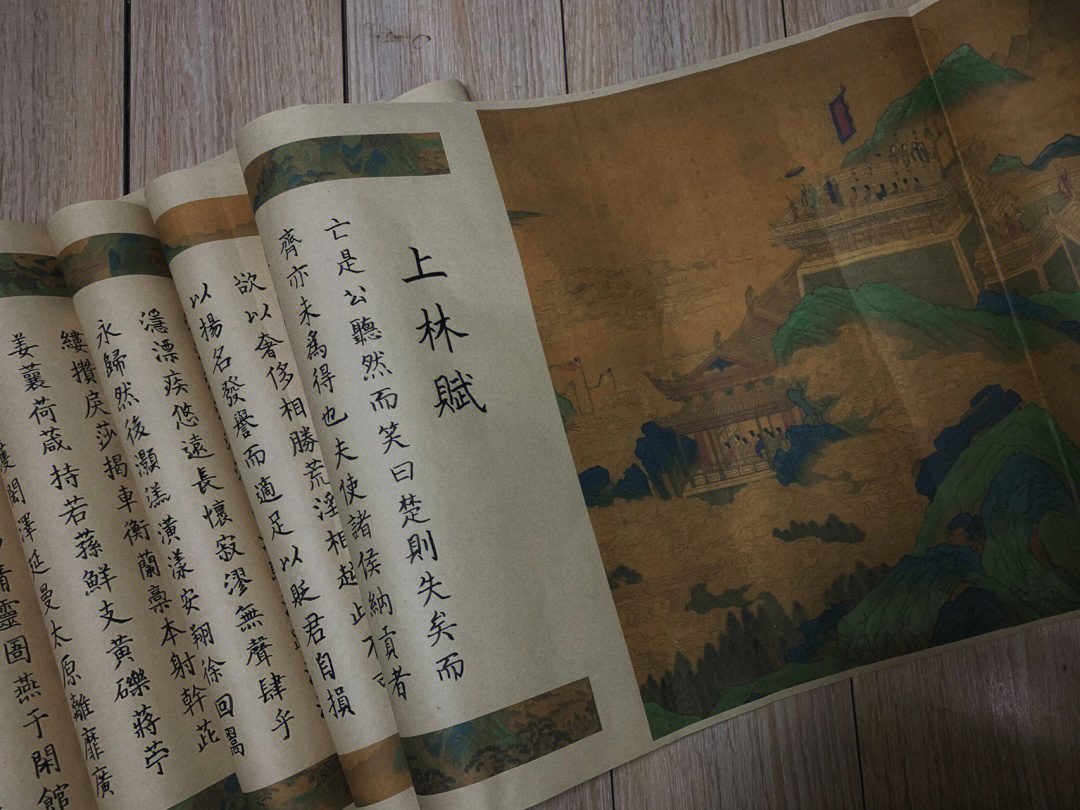 上林賦
亡是公聽然而笑曰楚則失矣而
齊亦未為得也夫使諸侯納貢者
欲以奢侈相勝荒淫相越
以揚名發譽而適足以貶君自損
濦漂疾悠遠長懷寂漻無聲肆乎
永歸然後灝溔潢漾安翔徐回翯
縷攢戾莎揭車衡蘭槀本射幹茈
姜蘘荷葴持若蓀鮮支黃礫蔣苧
濩閎澤延曼太原離靡廣
清靈圄燕于閑館